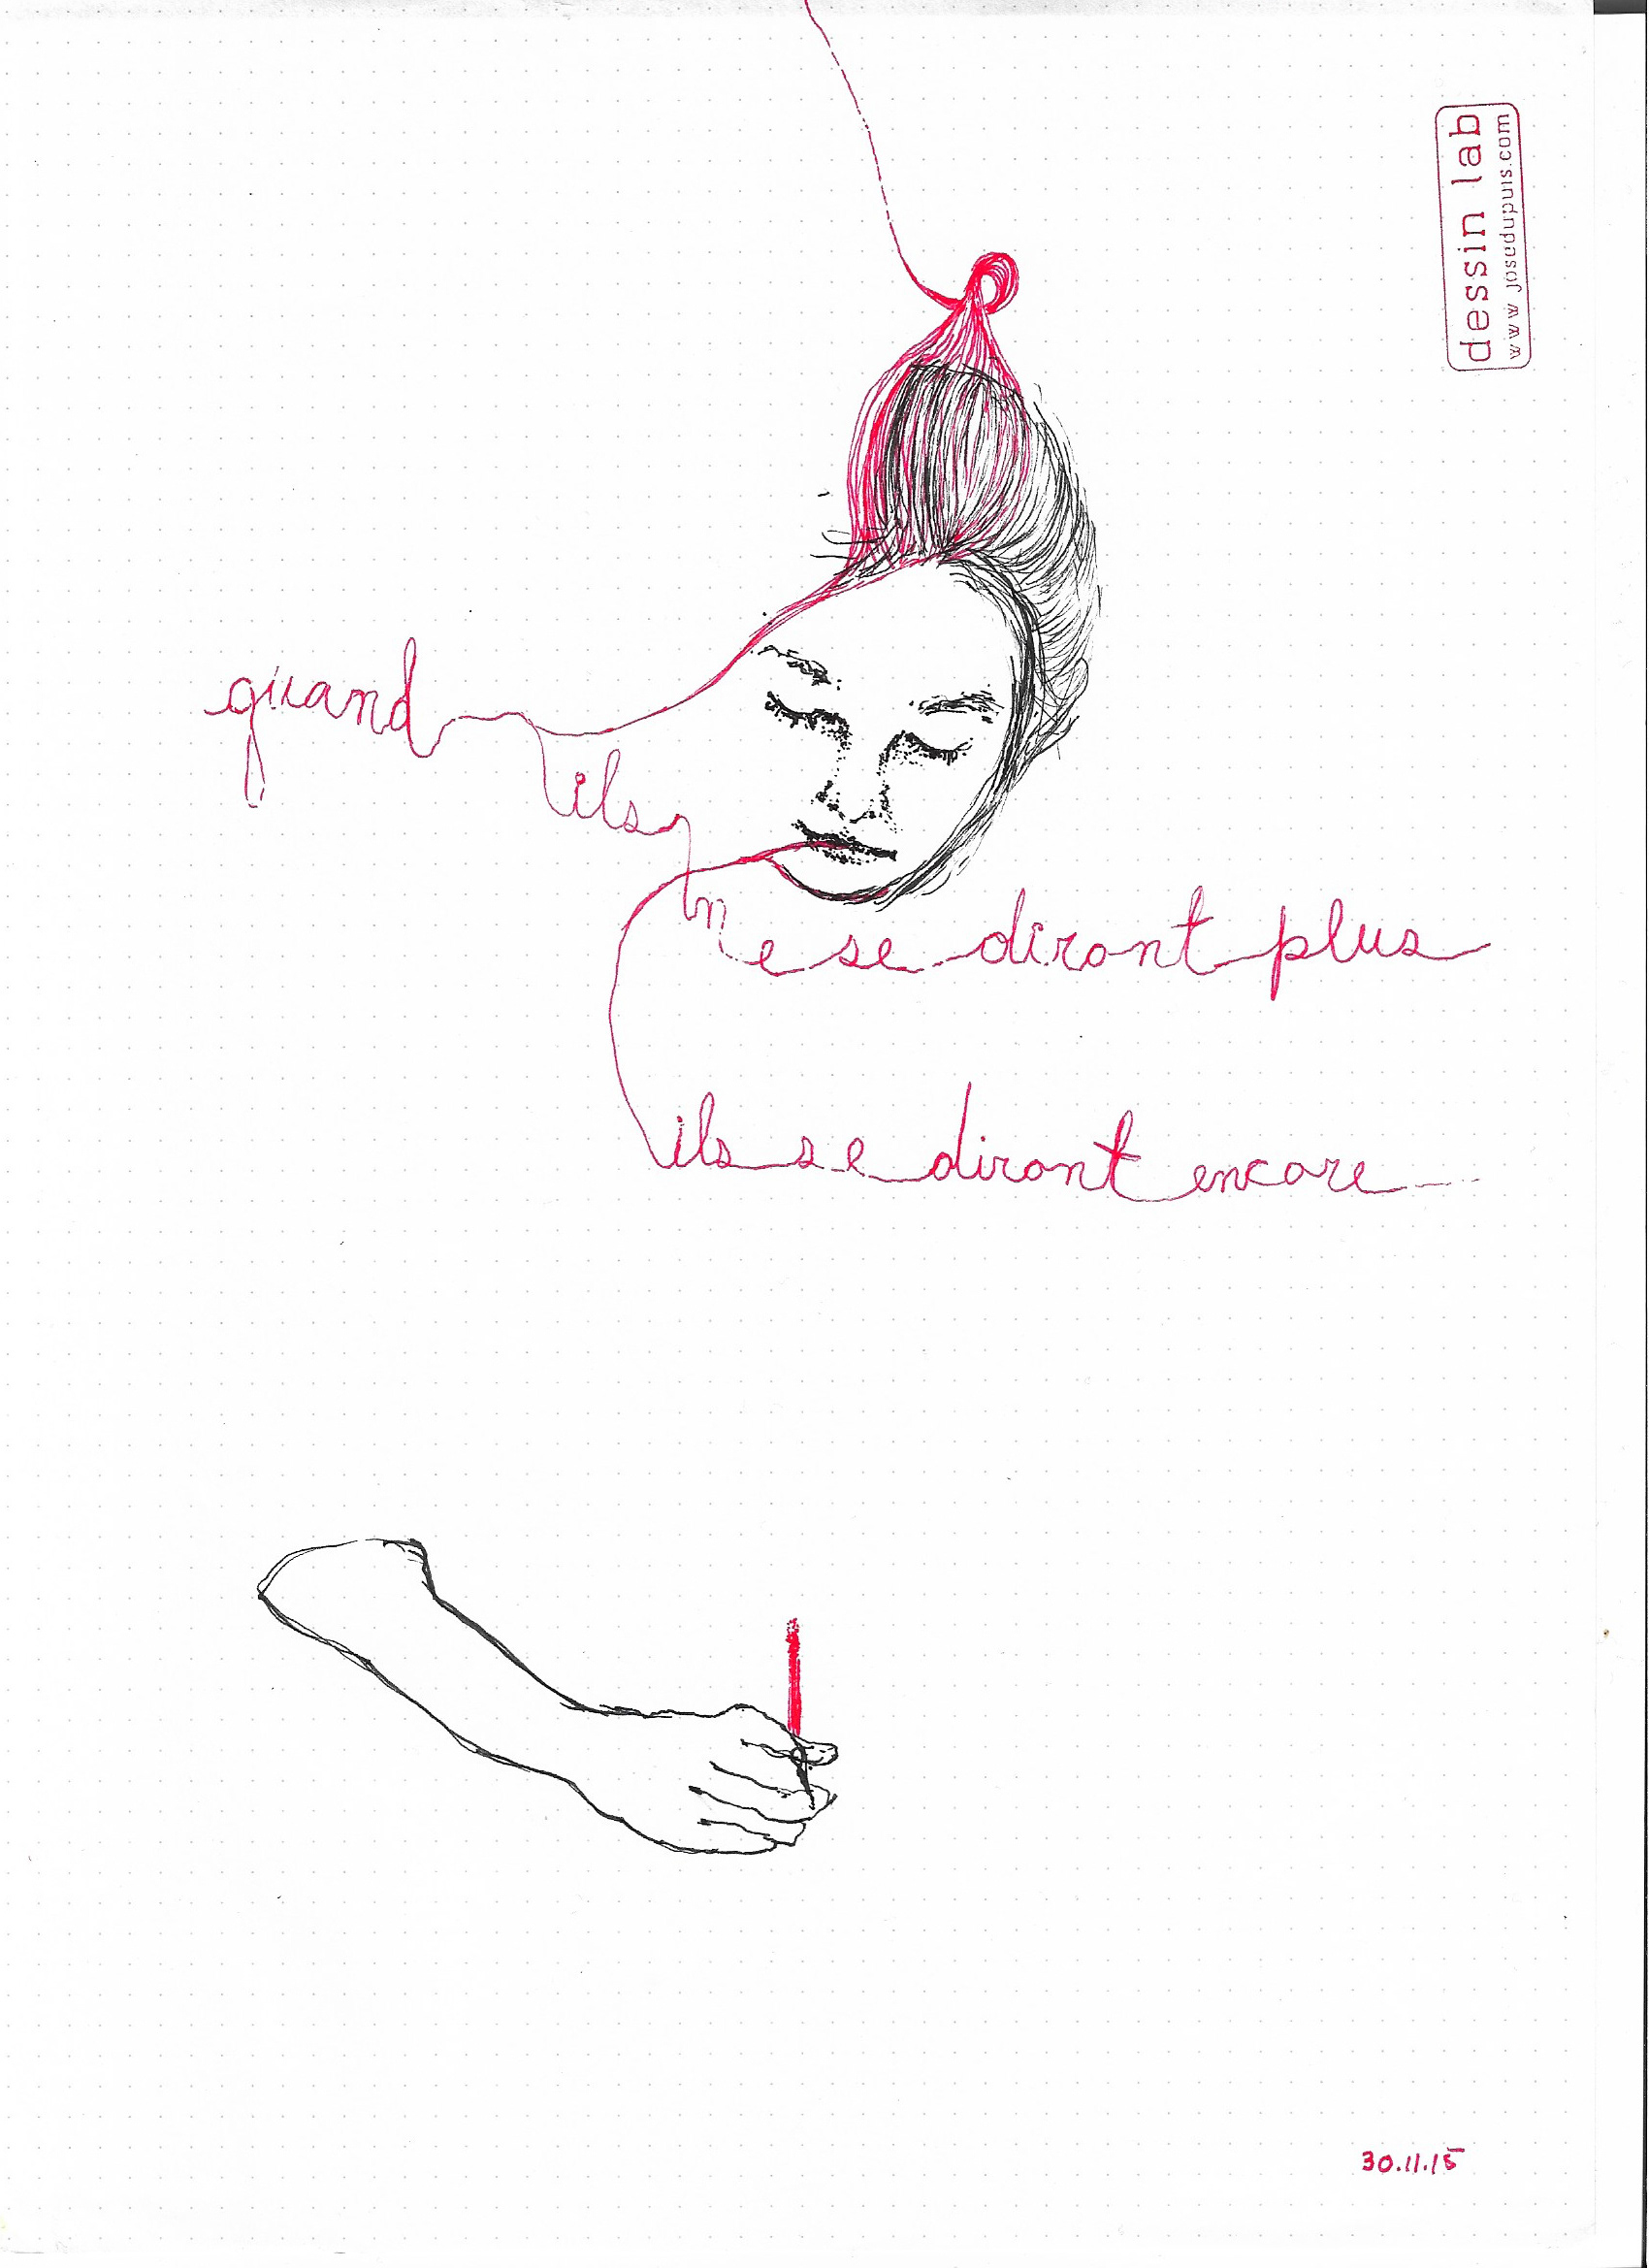 dessin lab
www.josedupuis.com
quand
ils
ne se diront plus
ils se diront encore
30.11.15